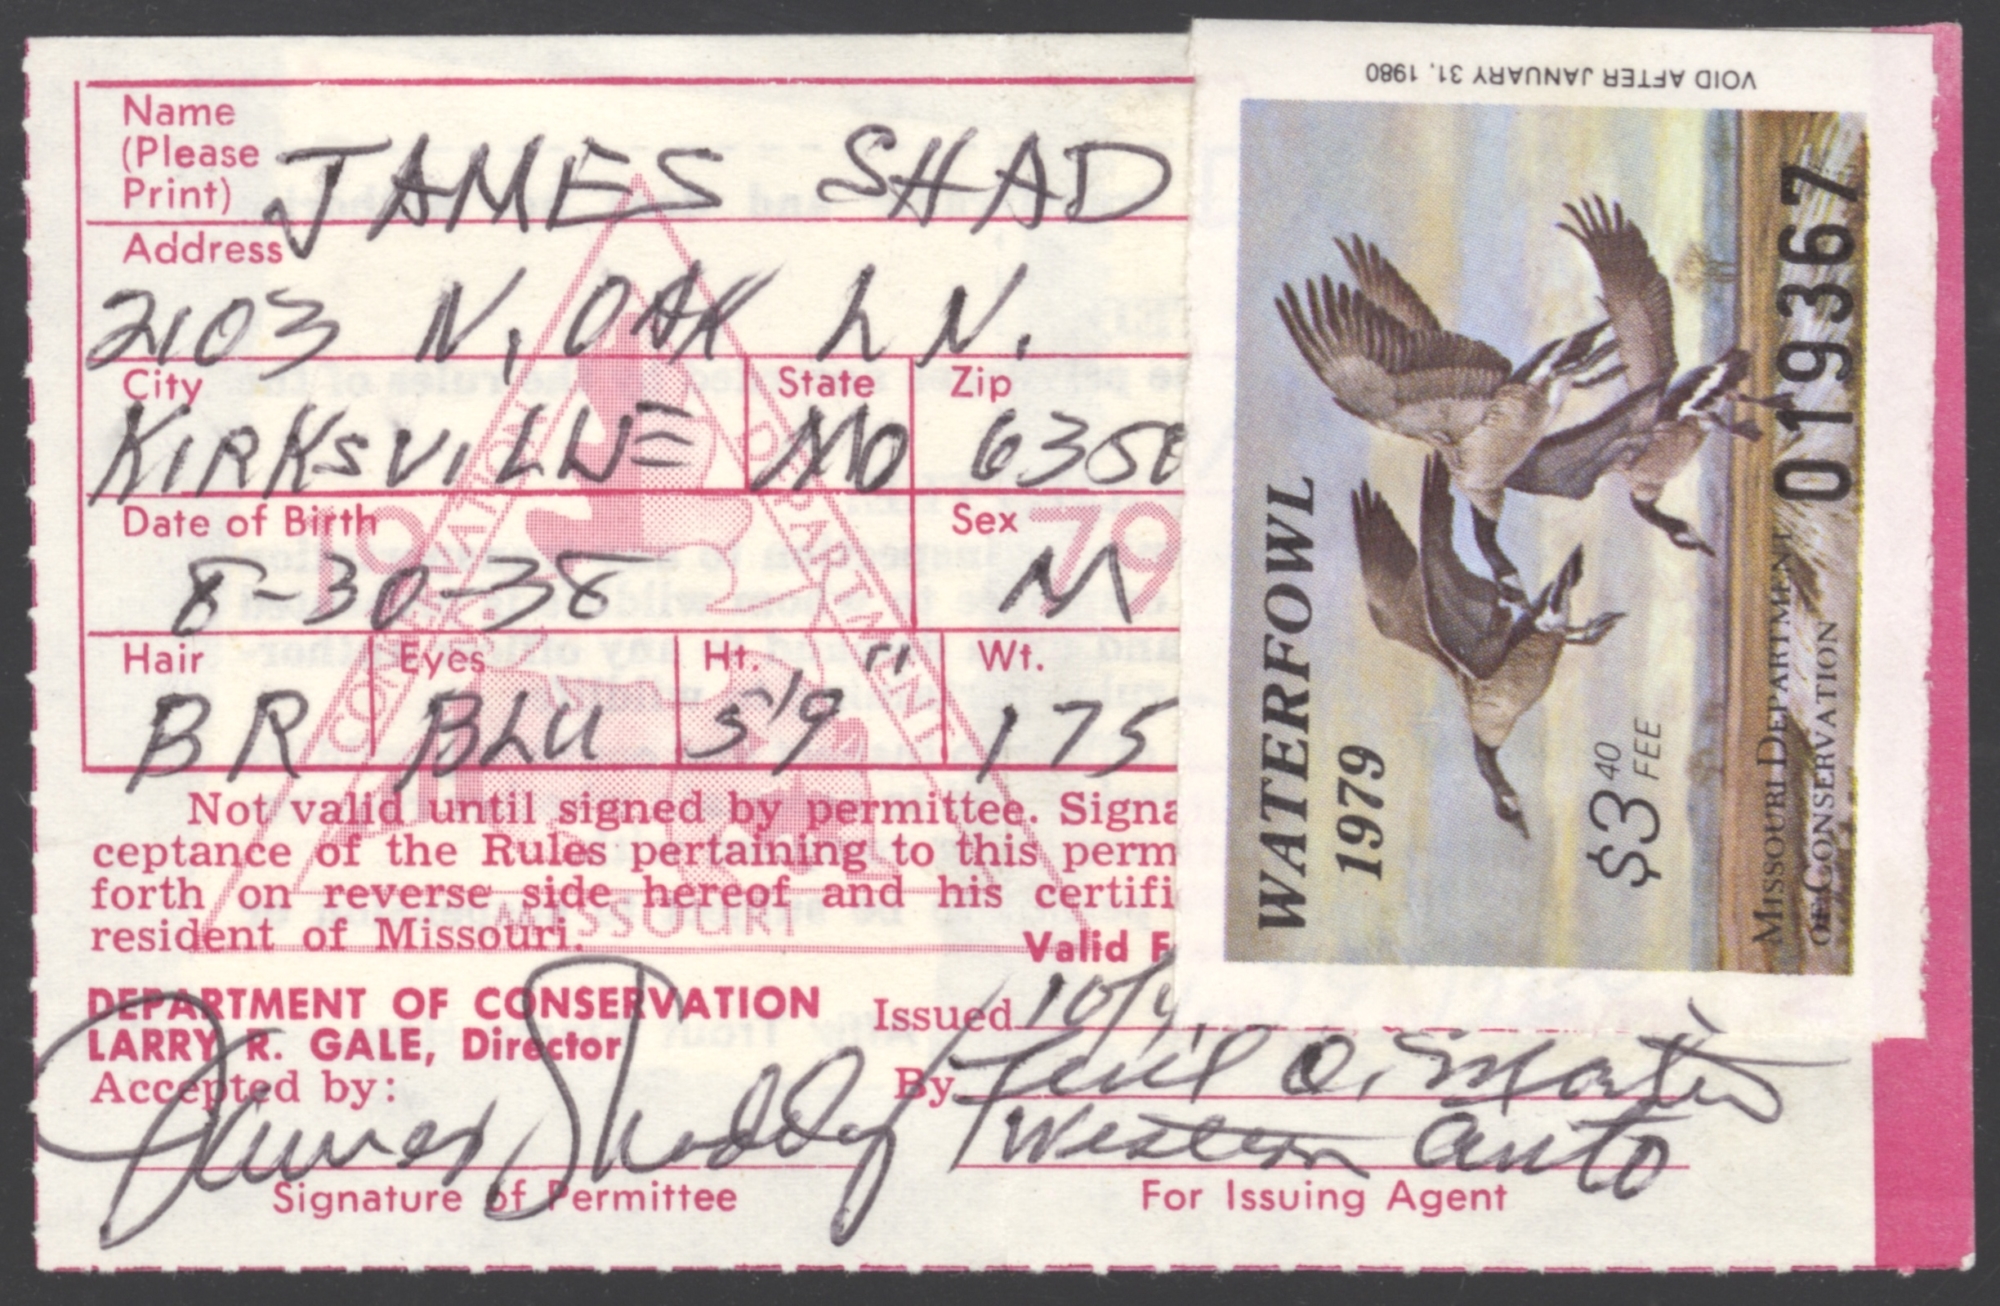 Name
(Please
Print) JAMES SHAD
Address
2103 N. OAK LN.
City State Zip
KIRKSVILLE MO 6350
Date of Birth Sex
19 79
8-30-38 M
Hair Eyes Ht. Wt.
BR BLU 5'9" 175
CONSERVATION DEPARTMENT
MISSOURI
Not valid until signed by permittee. Signa
ceptance of the Rules pertaining to this perm
forth on reverse side hereof and his certifi
resident of Missouri.
Valid F
DEPARTMENT OF CONSERVATION
LARRY R. GALE, Director
Issued 10/4
Accepted by: By
James Shaddy
Western Auto
Signature of Permittee For Issuing Agent
VOID AFTER JANUARY 31, 1980
WATERFOWL
1979
$3 40 FEE
MISSOURI DEPARTMENT
OF CONSERVATION
019367